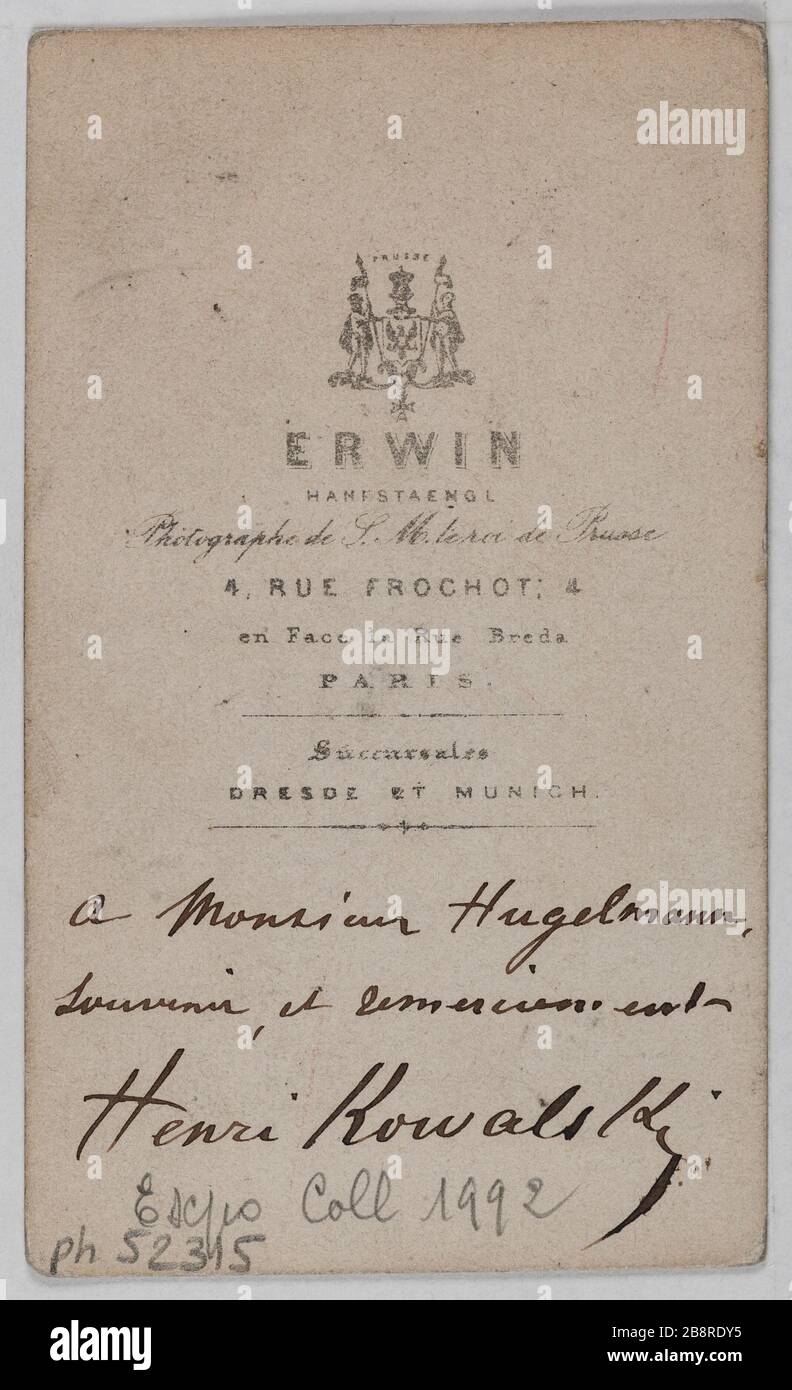 PRUSSE
ERWIN
HANFSTAENGL
Photographe de S. M. le roi de Prusse
4, RUE FROCHOT, 4
en Face la Rue Breda
PARIS.
Succursales
DRESDE ET MUNICH.
a Monsieur Hugelmann,
souvenir, et remerciement
Henri Kowalski
Expo Coll 1992
ph 52315
alamy
Image ID: 2B8RDY5
www.alamy.com